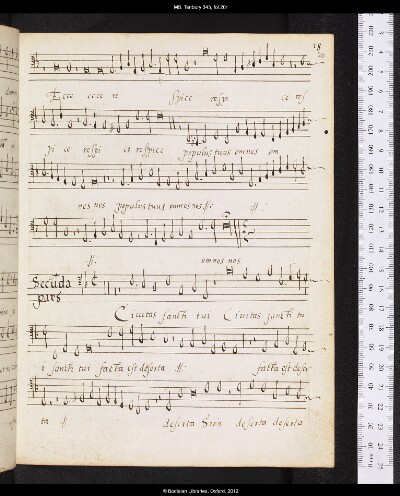 MS. Tenbury 343, fol.20r
Ecce ecce re spice respi ce res
pi ce respi ce respice populus tuus omnes om
nes nos populus tuus omnes nos
omnes nos
Secūda
pars
Civitas sancti tui Civitas sancti tu
i sancti tui facta est deserta facta est deser
ta deserta Sion deserta deserta
© Bodleian Libraries, Oxford, 2012